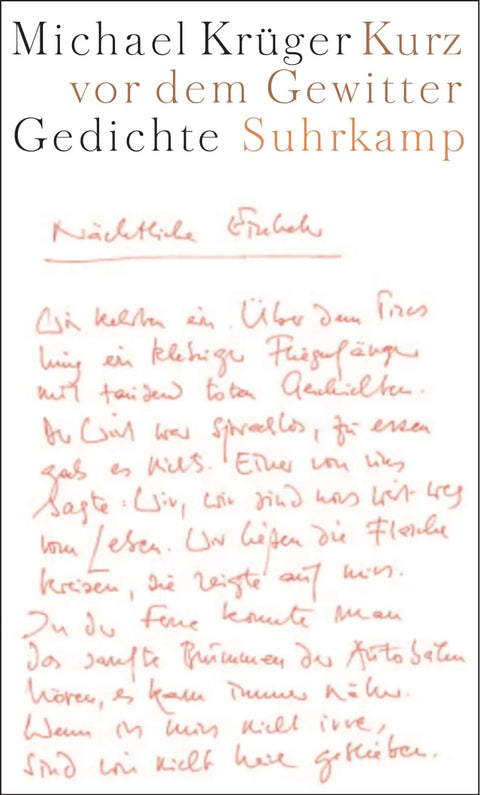 Michael Krüger Kurz
vor dem Gewitter
Gedichte Suhrkamp
Nächtliche Einkehr
Wir kehrten ein. Über dem Tresen
hing ein klebriger Fliegenfänger
mit tausend toten Geschichten.
Der Wirt war sprachlos, zu essen
gab es nichts. Einer von uns
sagte: Wir, wir sind noch weit weg
vom Leben. Wir ließen die Flasche
kreisen, sie zeigte auf mich.
In der Ferne konnte man
das sanfte Brummen der Autobahn
hören, es kam immer näher.
Wenn ich mich nicht irre,
sind wir nicht heil geblieben.